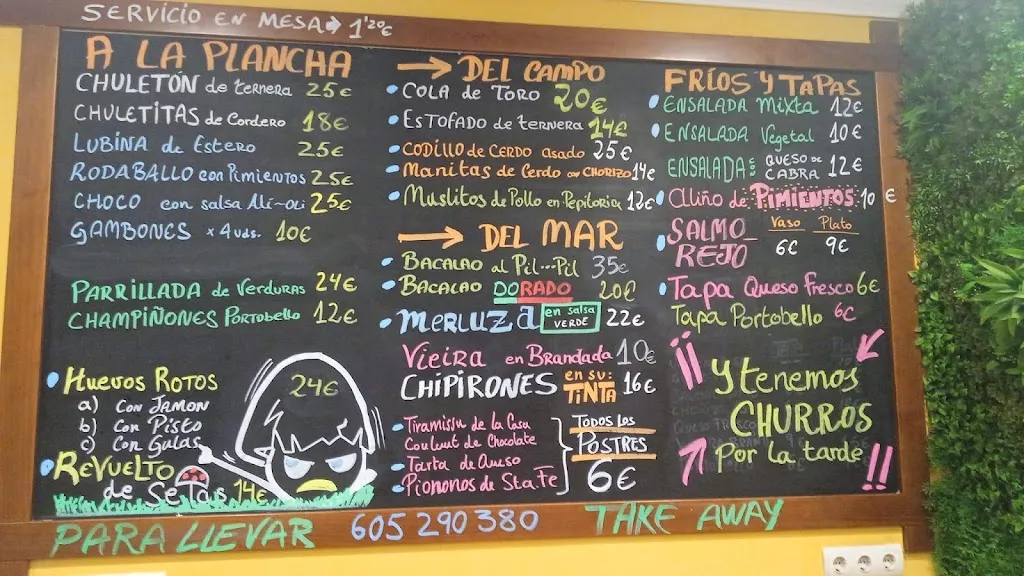 SERVICIO EN MESA → 1'20€
A LA PLANCHA
CHULETÓN de ternera 25€
CHULETITAS de Cordero 18€
LUBINA de Estero 25€
RODABALLO con Pimientos 25€
CHOCO con salsa Ali-oli 25€
GAMBONES x 4 uds. 10€
PARRILLADA de Verduras 24€
CHAMPIÑONES PORTOBELLO 12€
HUEVOS ROTOS 24€
a) CON JAMON
b) CON PISTO
c) CON GULAS
REVUELTO
de SETAS 14€
→ DEL CAMPO
COLA de TORO 20€
ESTOFADO de ternera 14€
CODILLO de CERDO asado 25€
Manitas de Cerdo con CHORIZO 14€
Muslitos de Pollo en Pepitoria 12€
→ DEL MAR
BACALAO al Pil-Pil 35€
BACALAO DORADO 20€
MERLUZA en salsa VERDE 22€
Vieira en Brandada 10€
CHIPIRONES en su: TINTA 16€
Tiramisu de la Casa
Coulant de Chocolate
Tarta de Queso
Piononos de Sta Fe
TODOS LOS
POSTRES
6€
FRÍOS Y TAPAS
ENSALADA Mixta 12€
ENSALADA Vegetal 10€
ENSALADA: QUESO DE CABRA 12€
Aliño de PIMIENTOS 10€
SALMO-
REJO
Vaso Plato
6€ 9€
Tapa Queso Fresco 6€
Tapa Portobello 6€
¡¡ Y tenemos
CHURROS
Por la tarde !!
PARA LLEVAR 605 290 380 TAKE AWAY